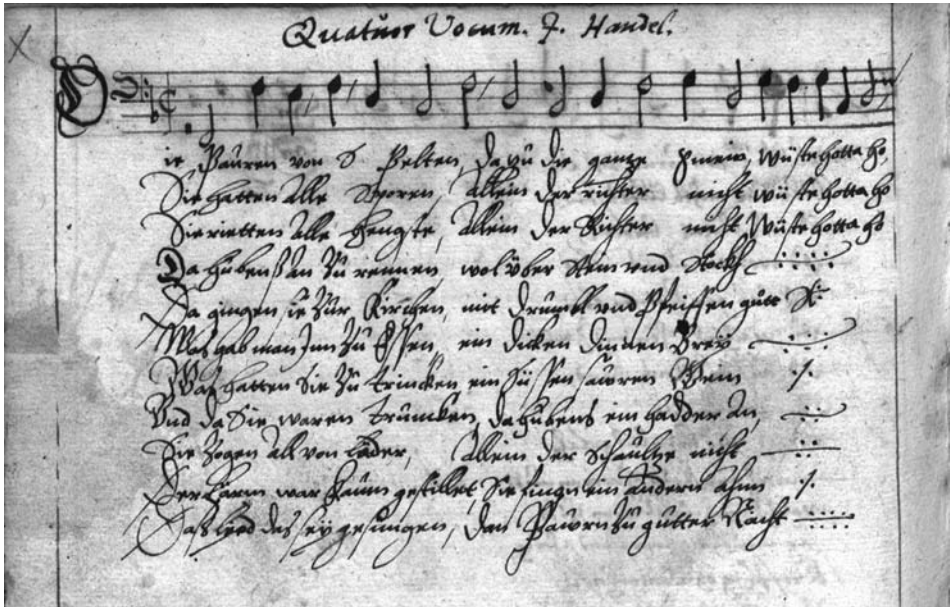 Quatuor Vocum. J. Handel.
Die Pauren von S Pelten, da zu die ganze gmein, wüste hotta ho,
Sie hatten alle Sporen, allein der richter nicht wüste hotta ho
Sie rietten alle hengste, allein der Richter nicht, Wüste hotta ho
Da hubens an zu rennen, wol über Stein und Stockh
Da gingen sie zur Kirchen, mit Drumbl und Pfeiffen gutt
Was gab man Jnn zu Essen, ein dicken dinnen Brey
Was hatten Sie zu trincken ein süssen sawren Wein
Und da Sie waren truncken, da hubens ein hadder an,
Sie zogen all von Läder, allein der Schultze nicht
Der Lärm war kaum gestillet, Sie fingn ein andern ahnn
Dass Leed des sey gesungen, den Pawrn zu gutter Nacht